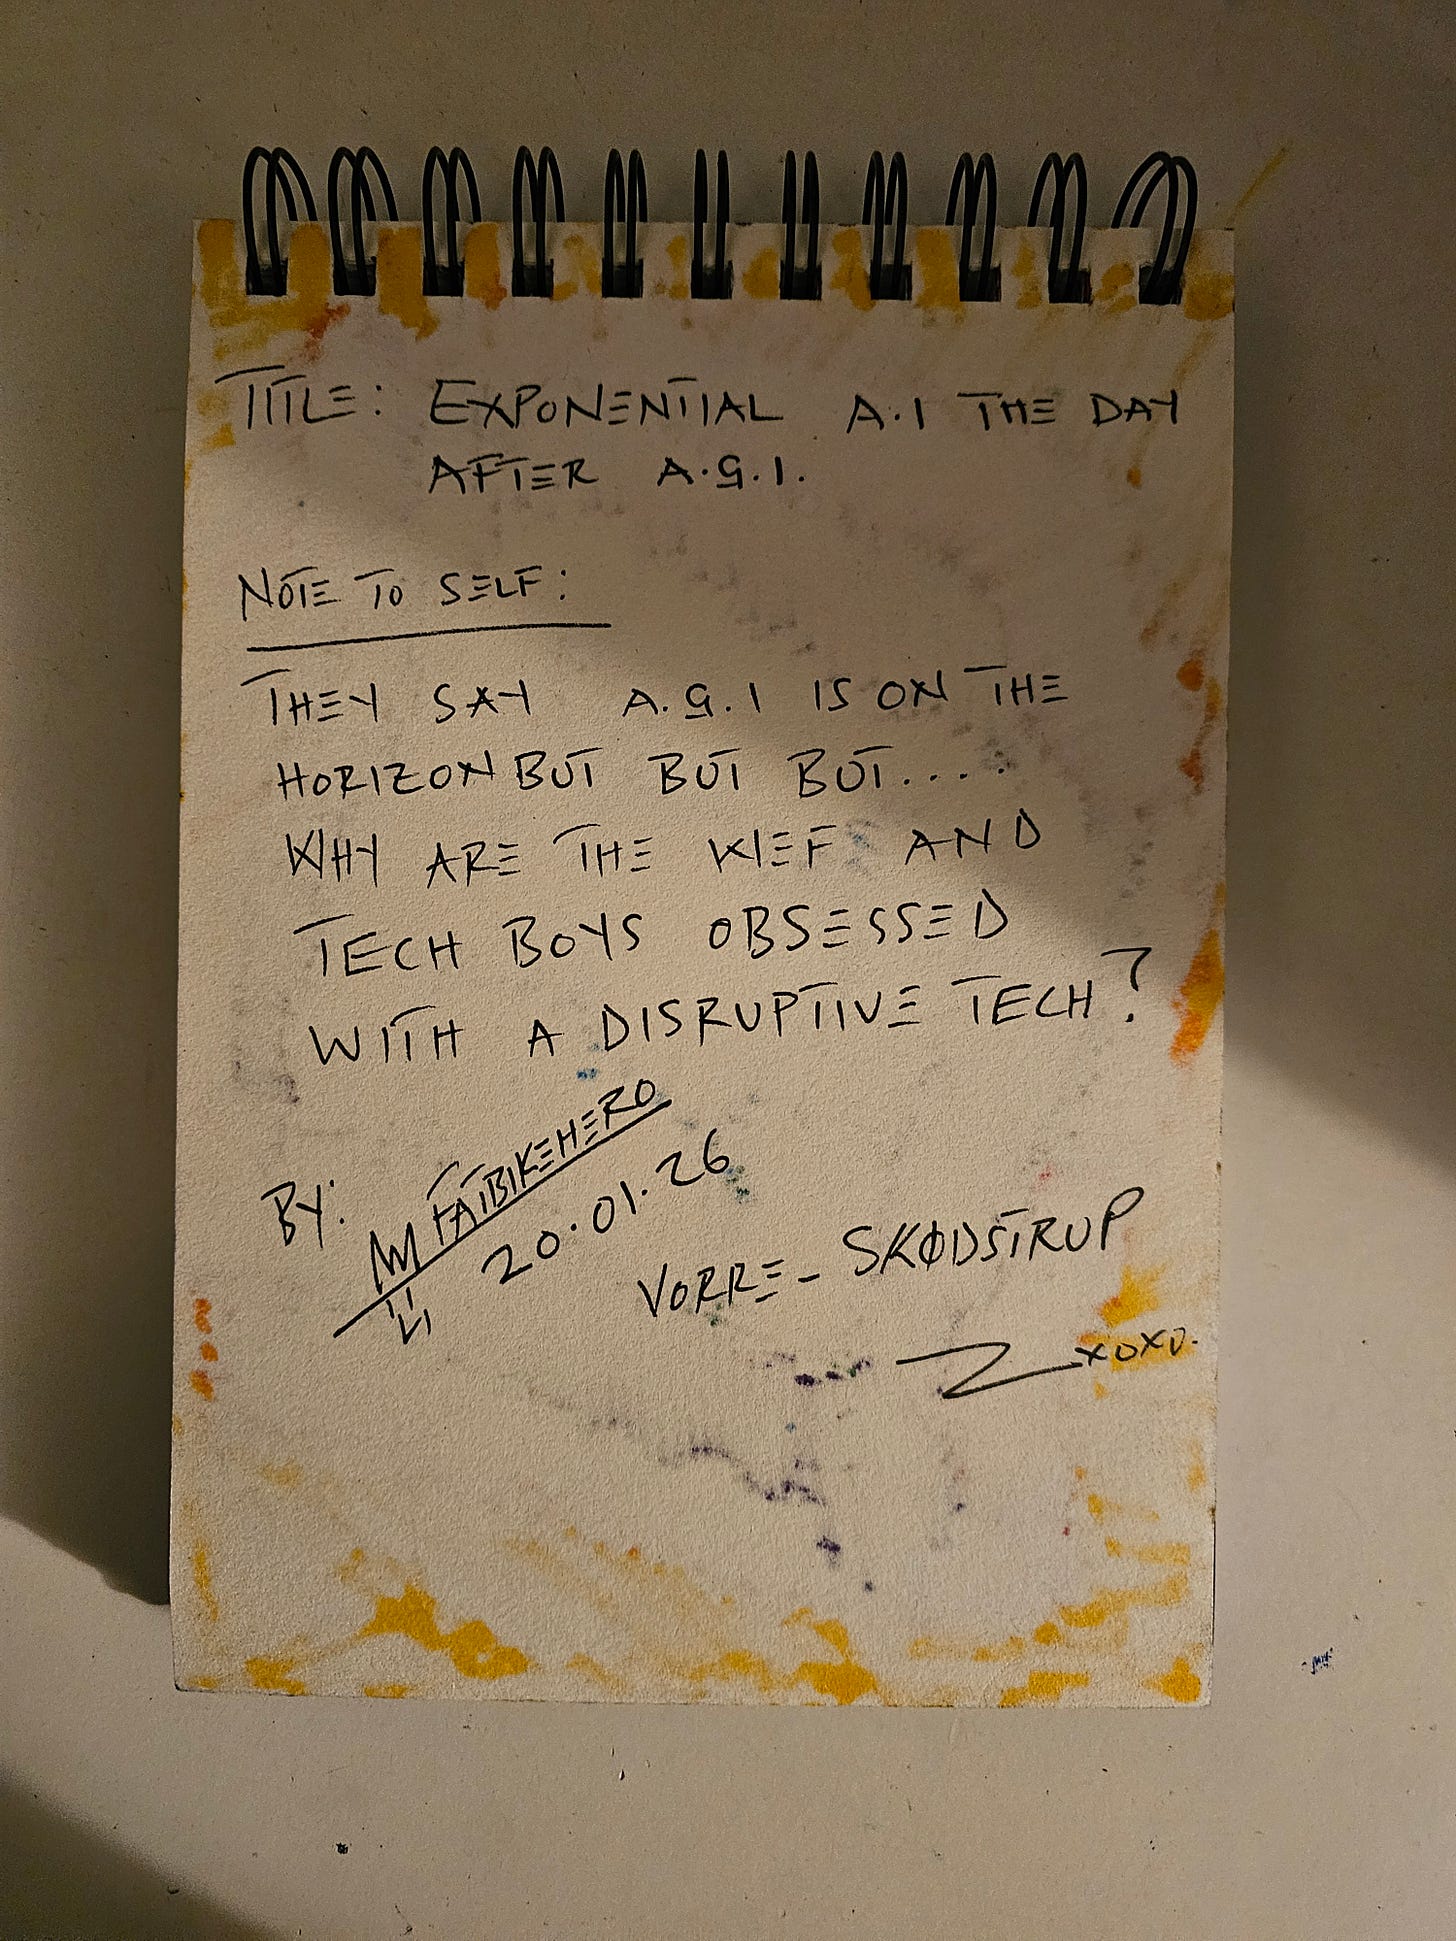 TITLE: EXPONENTIAL A.I THE DAY
AFTER A.G.I.
NOTE TO SELF:
THEY SAY A.G.I IS ON THE
HORIZON BUT BUT BUT.....
WHY ARE THE WEF AND
TECH BOYS OBSESSED
WITH A DISRUPTIVE TECH?
BY: FATBIKEHERO
20.01.26
VORRE - SKØDSTRUP
XOXO.